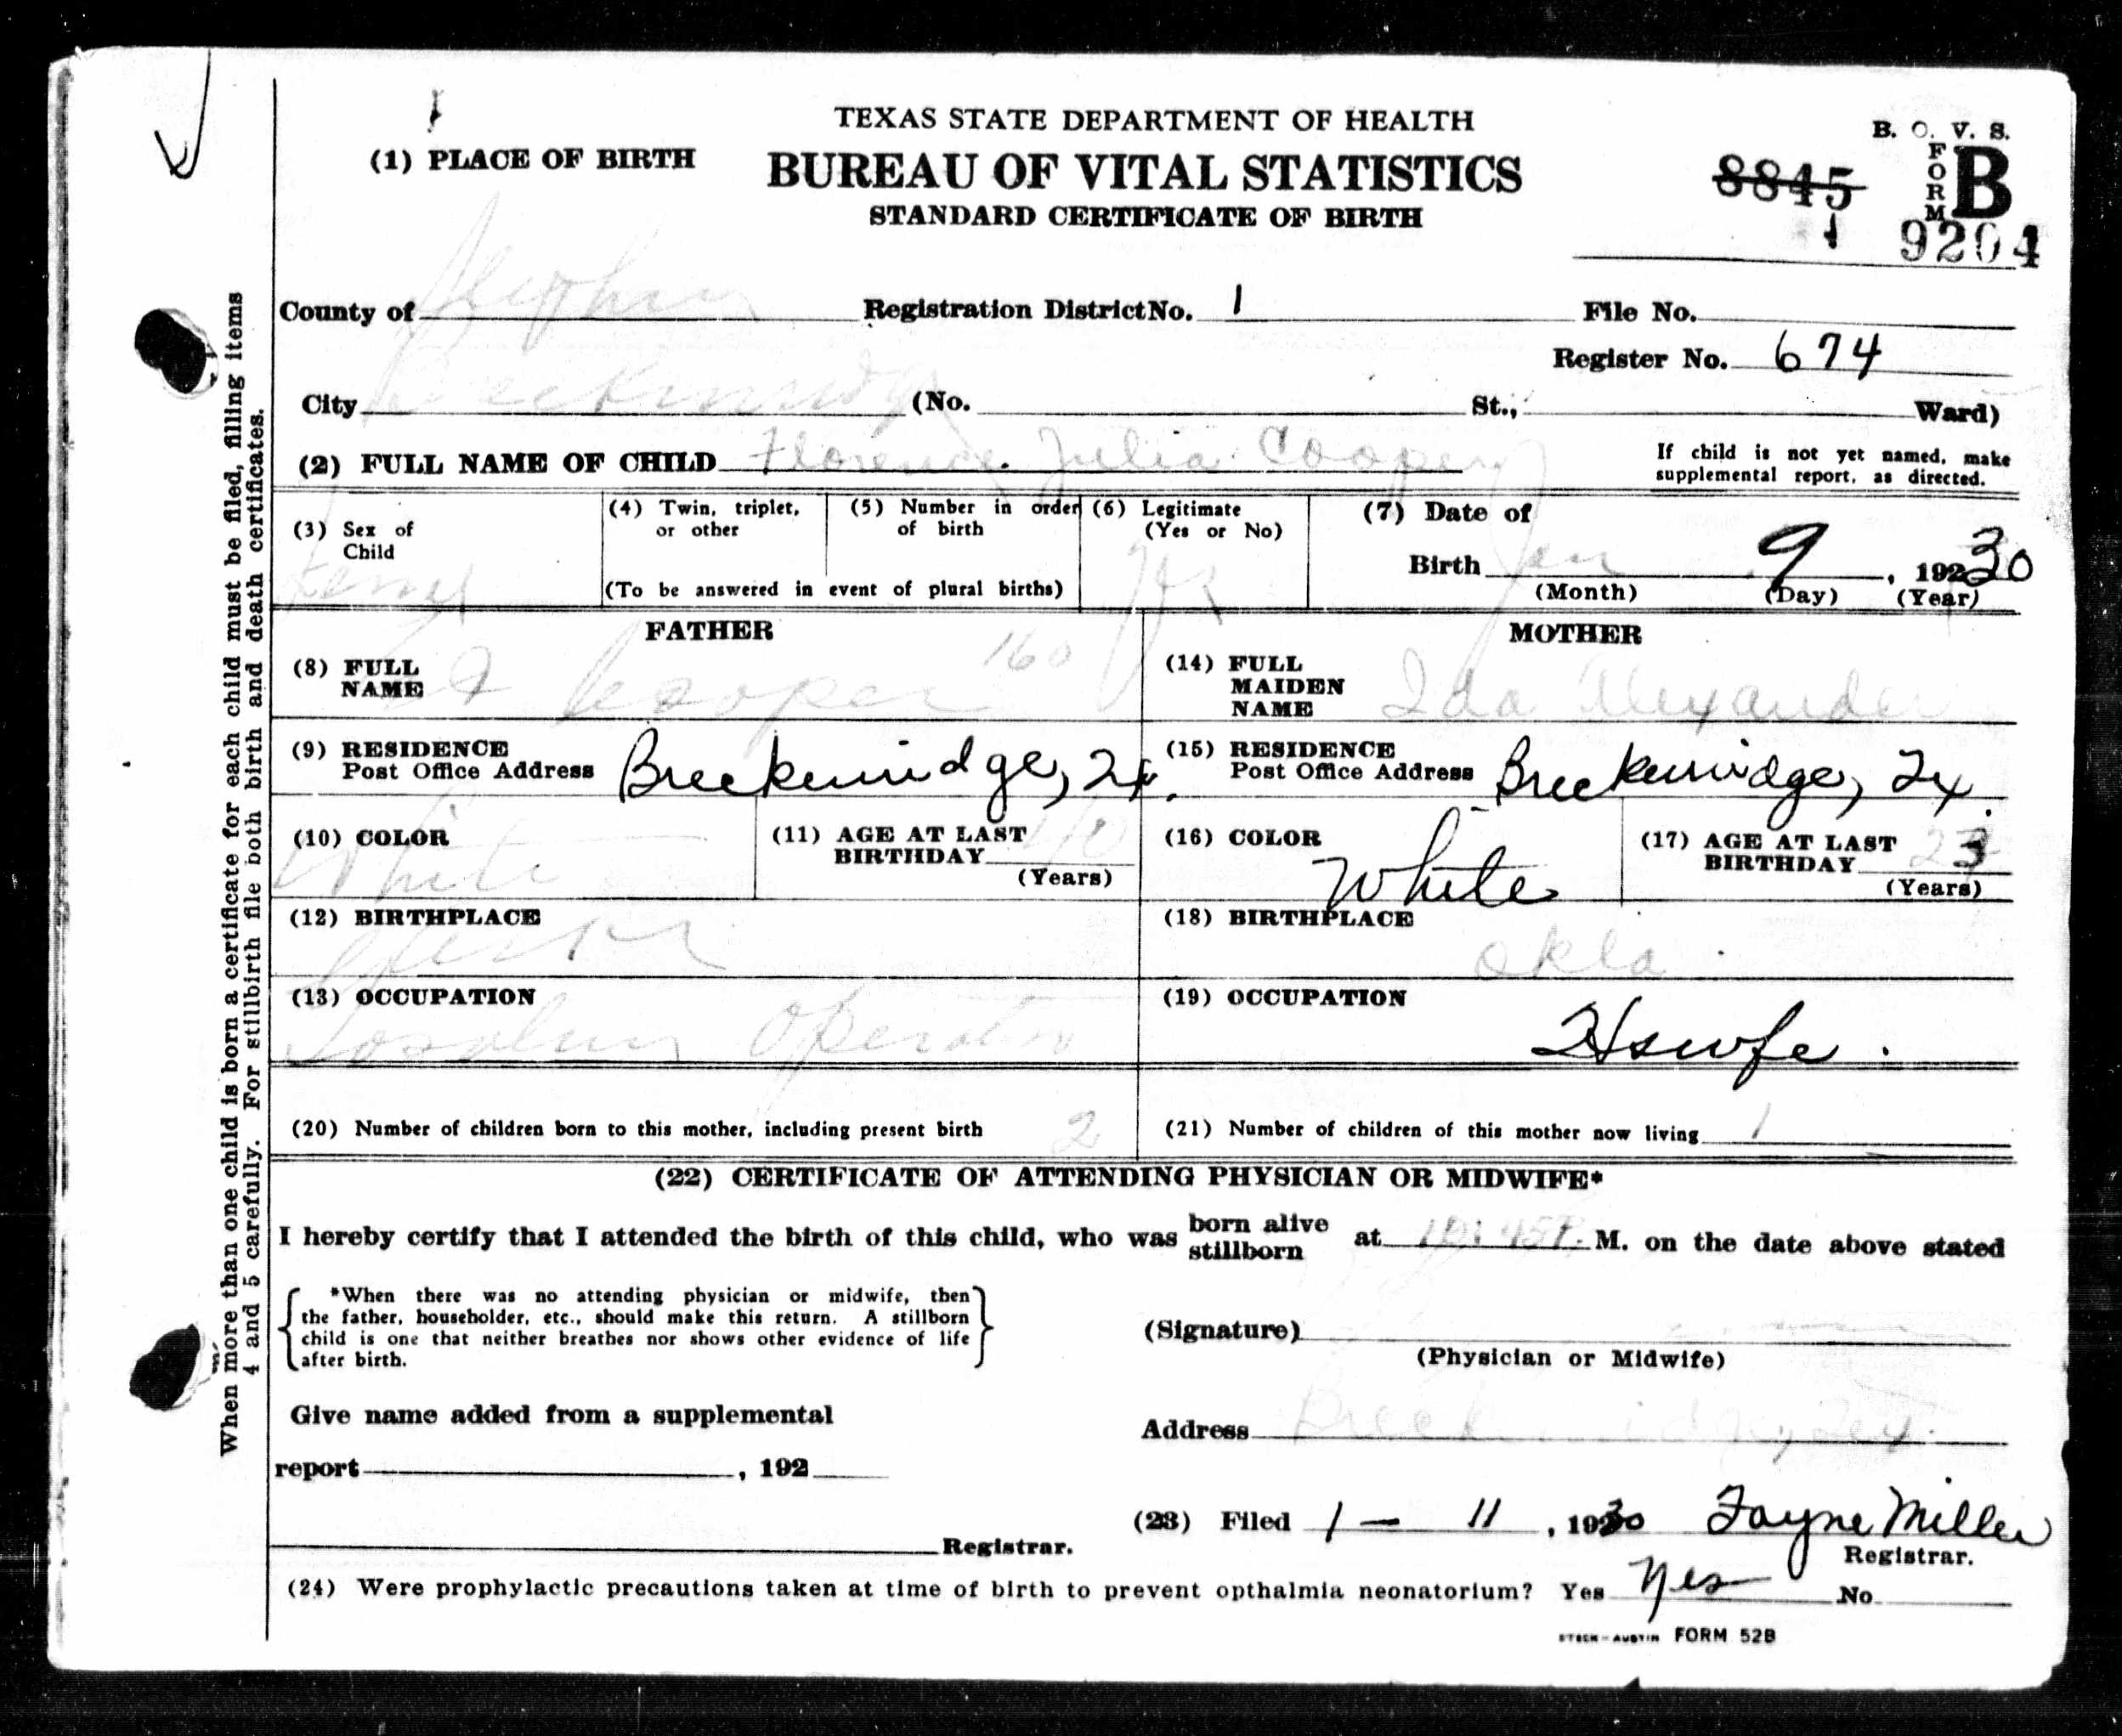 TEXAS STATE DEPARTMENT OF HEALTH
BUREAU OF VITAL STATISTICS
STANDARD CERTIFICATE OF BIRTH
B. O. V. S.
FORM B
8845
9204
(1) PLACE OF BIRTH
County of Stephens Registration District No. 1 File No.
Register No. 674
City Breckenridge (No. St., Ward)
(2) FULL NAME OF CHILD Florence Julia Cooper
If child is not yet named, make
supplemental report, as directed.
(3) Sex of
Child
(4) Twin, triplet,
or other
(5) Number in order
of birth
(To be answered in event of plural births)
(6) Legitimate
(Yes or No)
(7) Date of
Birth Jan 9, 19230
(Month) (Day) (Year)
FATHER
(8) FULL
NAME Cooper 160
(9) RESIDENCE
Post Office Address Breckenridge, Tx.
(10) COLOR White
(11) AGE AT LAST
BIRTHDAY 40
(Years)
(12) BIRTHPLACE
(13) OCCUPATION
Operator
MOTHER
(14) FULL
MAIDEN
NAME Ida Alexander
(15) RESIDENCE
Post Office Address Breckenridge, Tx.
(16) COLOR
White
(17) AGE AT LAST
BIRTHDAY 23
(Years)
(18) BIRTHPLACE
Okla.
(19) OCCUPATION
Hswfe.
(20) Number of children born to this mother, including present birth 2
(21) Number of children of this mother now living 1
(22) CERTIFICATE OF ATTENDING PHYSICIAN OR MIDWIFE*
I hereby certify that I attended the birth of this child, who was born alive stillborn at 10:45P. M. on the date above stated
*When there was no attending physician or midwife, then
the father, householder, etc., should make this return. A stillborn
child is one that neither breathes nor shows other evidence of life
after birth.
(Signature)
(Physician or Midwife)
Give name added from a supplemental
report , 192
Address Breckenridge, Tex.
Registrar.
(23) Filed 1 - 11, 1930 Fayne Miller
Registrar.
(24) Were prophylactic precautions taken at time of birth to prevent opthalmia neonatorium? Yes Yes No
STECK-AUSTIN FORM 52B
When more than one child is born a certificate for each child must be filed, filling items
4 and 5 carefully. For stillbirth file both birth and death certificates.